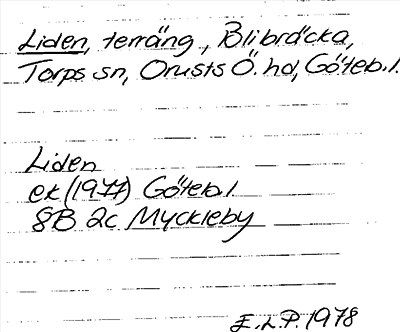 Liden, terräng, Blibräcka,
Torps sn, Orusts Ö. hd, Göteb. l.
Liden
ek (1977) Göteb. l.
8B 2c Myckleby
E.L.P. 1978